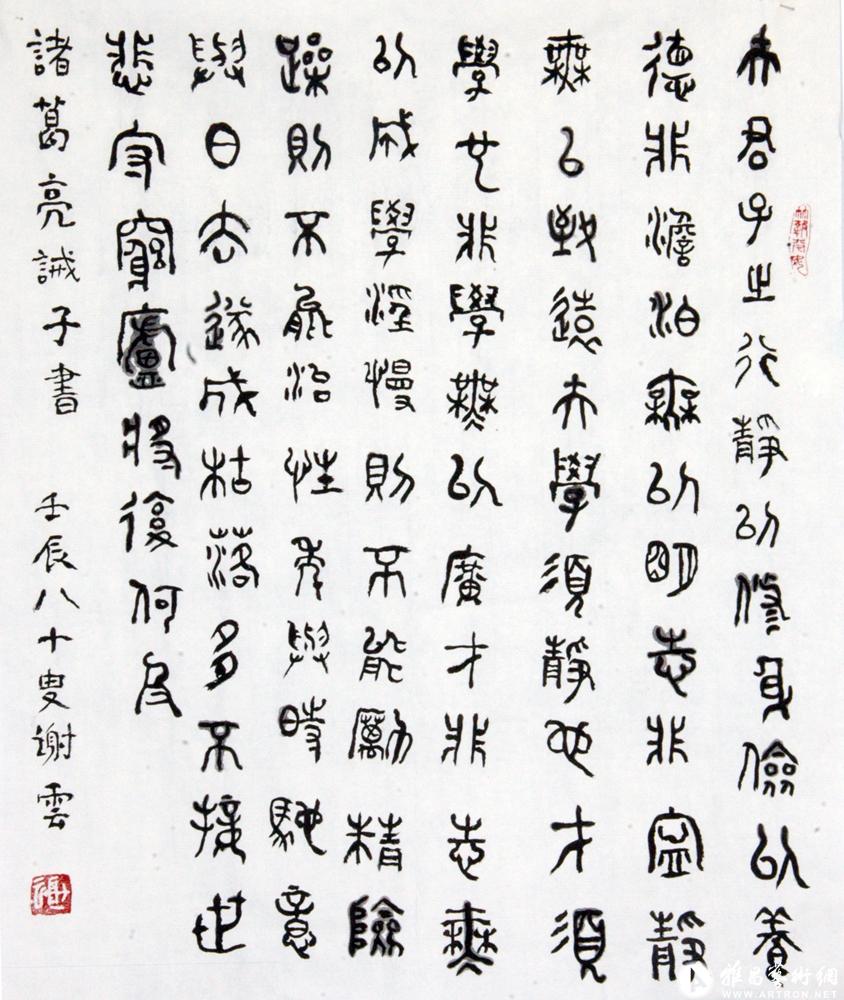 夫君子之行靜以修身儉以養
德非澹泊無以明志非寧靜
無以致遠夫學須靜也才須
學也非學無以廣才非志無
以成學淫慢則不能勵精險
躁則不能治性年與時馳意
與日去遂成枯落多不接世
悲守窮廬將復何及
諸葛亮誡子書 壬辰八十叟謝雲
雅昌藝術網
WWW.ARTRON.NET